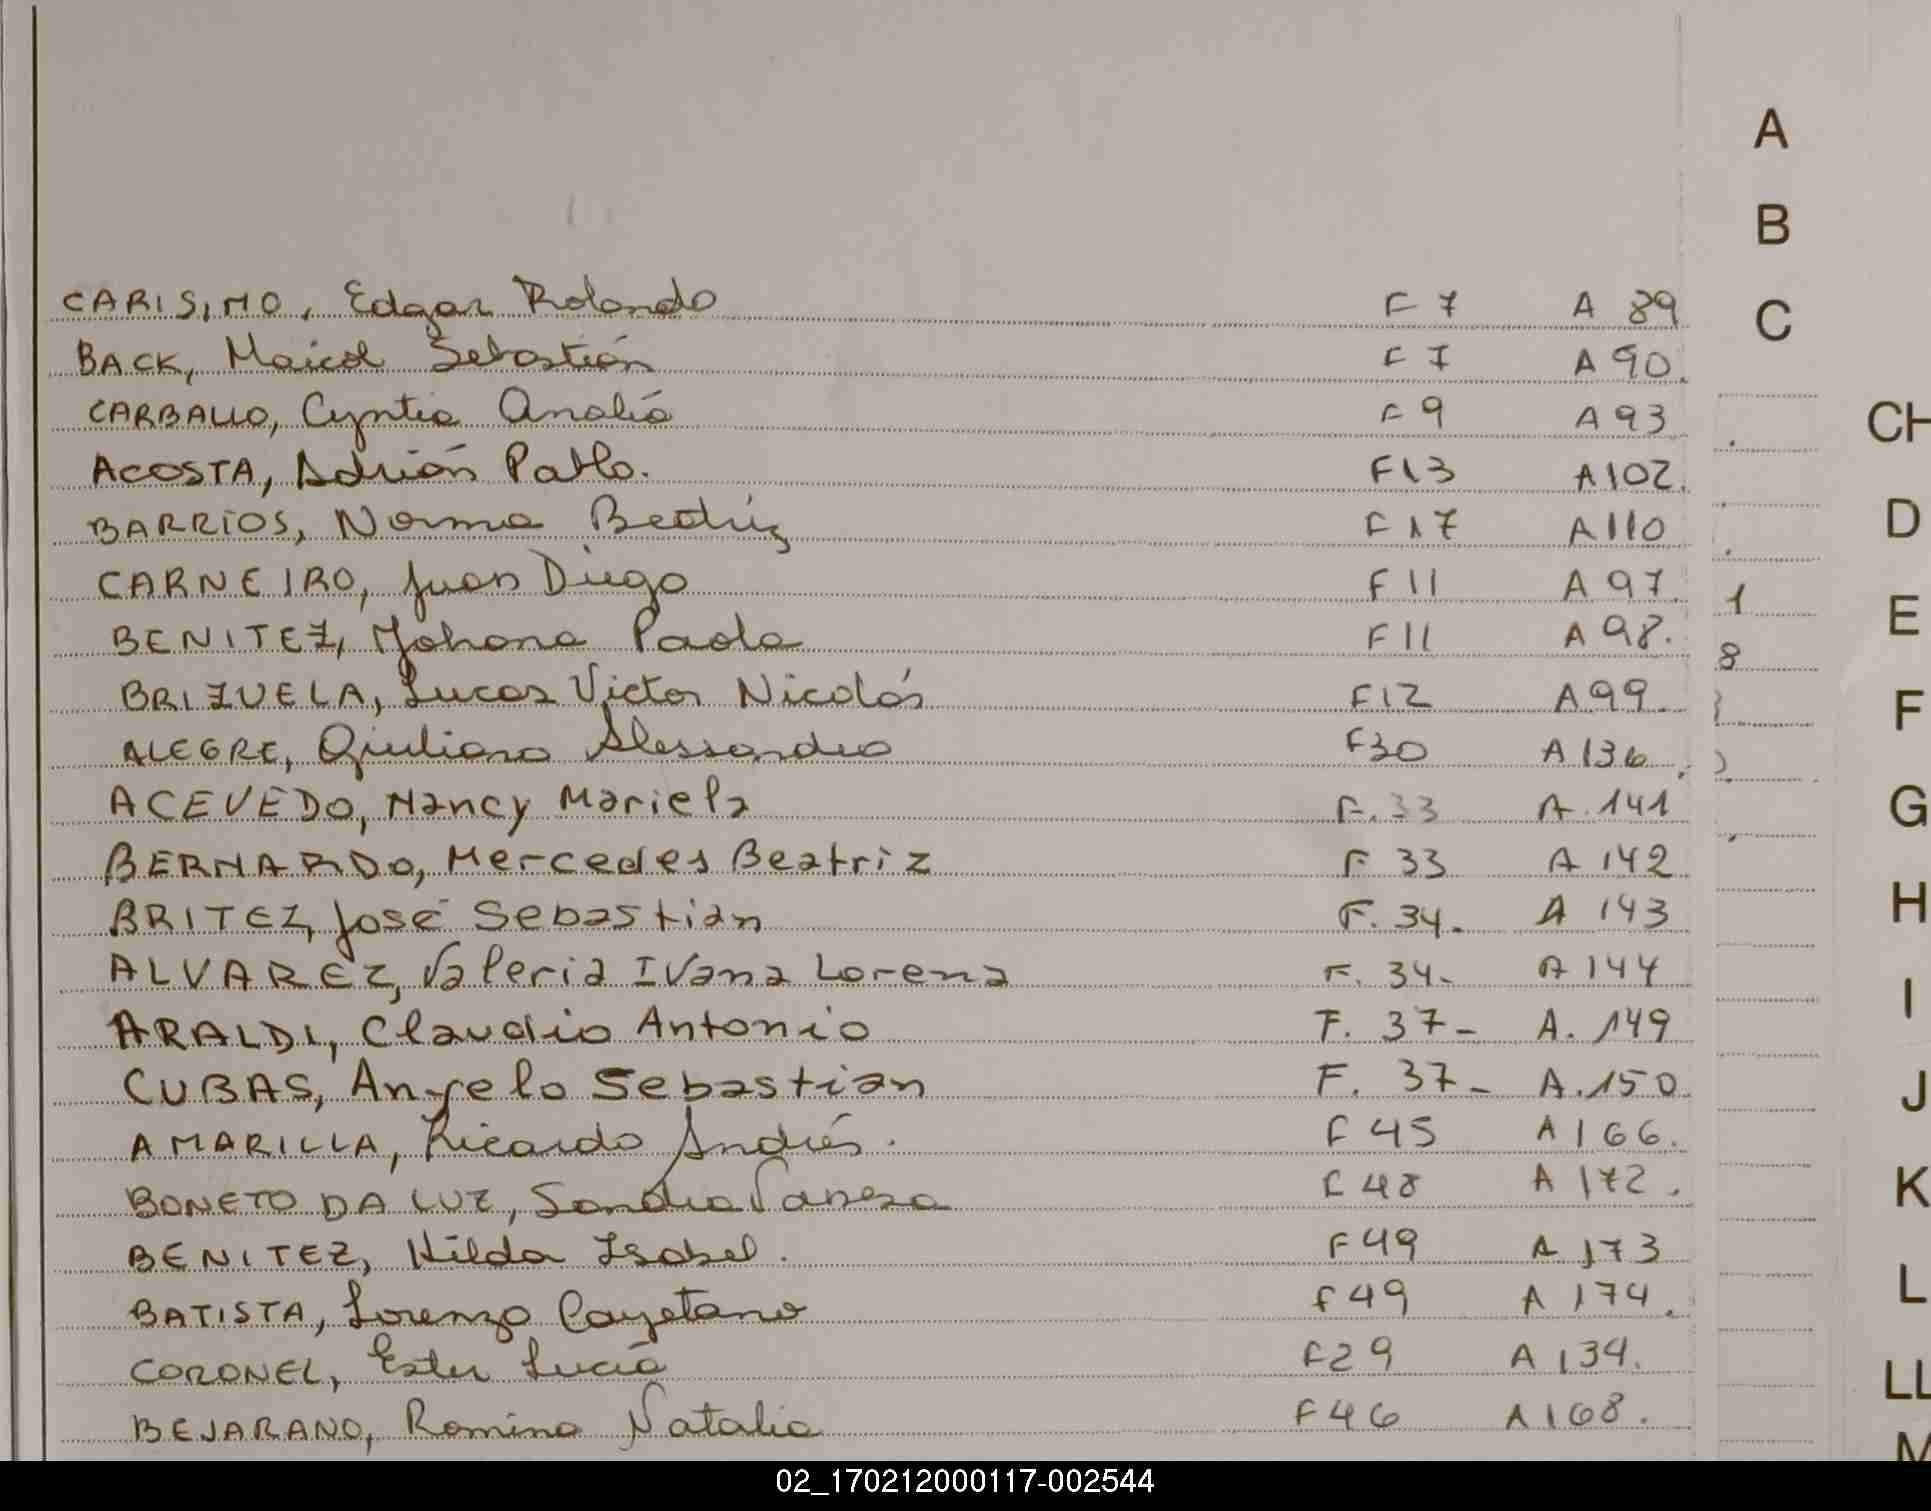 A
B
CARISIMO, Edgar Rolando F 7 A 89
C
BACK, Maicol Sebastián F 7 A 90.
CARBALLO, Cyntia Analía F 9 A 93
CH
ACOSTA, Adrián Pablo. F13 A102.
BARRIOS, Norma Beatriz F17 A110
D
CARNEIRO, Juan Diego F11 A 97.
1
E
BENITEZ, Yohana Paola F11 A 98.
8
BRIZUELA, Lucas Victor Nicolás F12 A99.
F
ALEGRE, Giuliano Alessandro F30 A 136.
ACEVEDO, Nancy Mariela F.33 A.141
G
BERNARDO, Mercedes Beatriz F 33 A 142
BRITEZ, José Sebastián F. 34- A 143
H
ALVAREZ, Valeria Ivana Lorena F. 34- A 144
I
ARALDI, Claudio Antonio F. 37- A. 149
CUBAS, Angelo Sebastian F. 37- A.150
J
AMARILLA, Ricardo Andrés. F 45 A 166.
BONETO DA LUZ, Sandra Vanesa F 48 A 172.
K
BENITEZ, Hilda Isabel. F49 A 173
BATISTA, Lorenzo Cayetano F 49 A 174.
L
CORONEL, Ester Lucía F29 A 134.
LL
BEJARANO, Romina Natalia F46 A168.
M
02_170212000117-002544